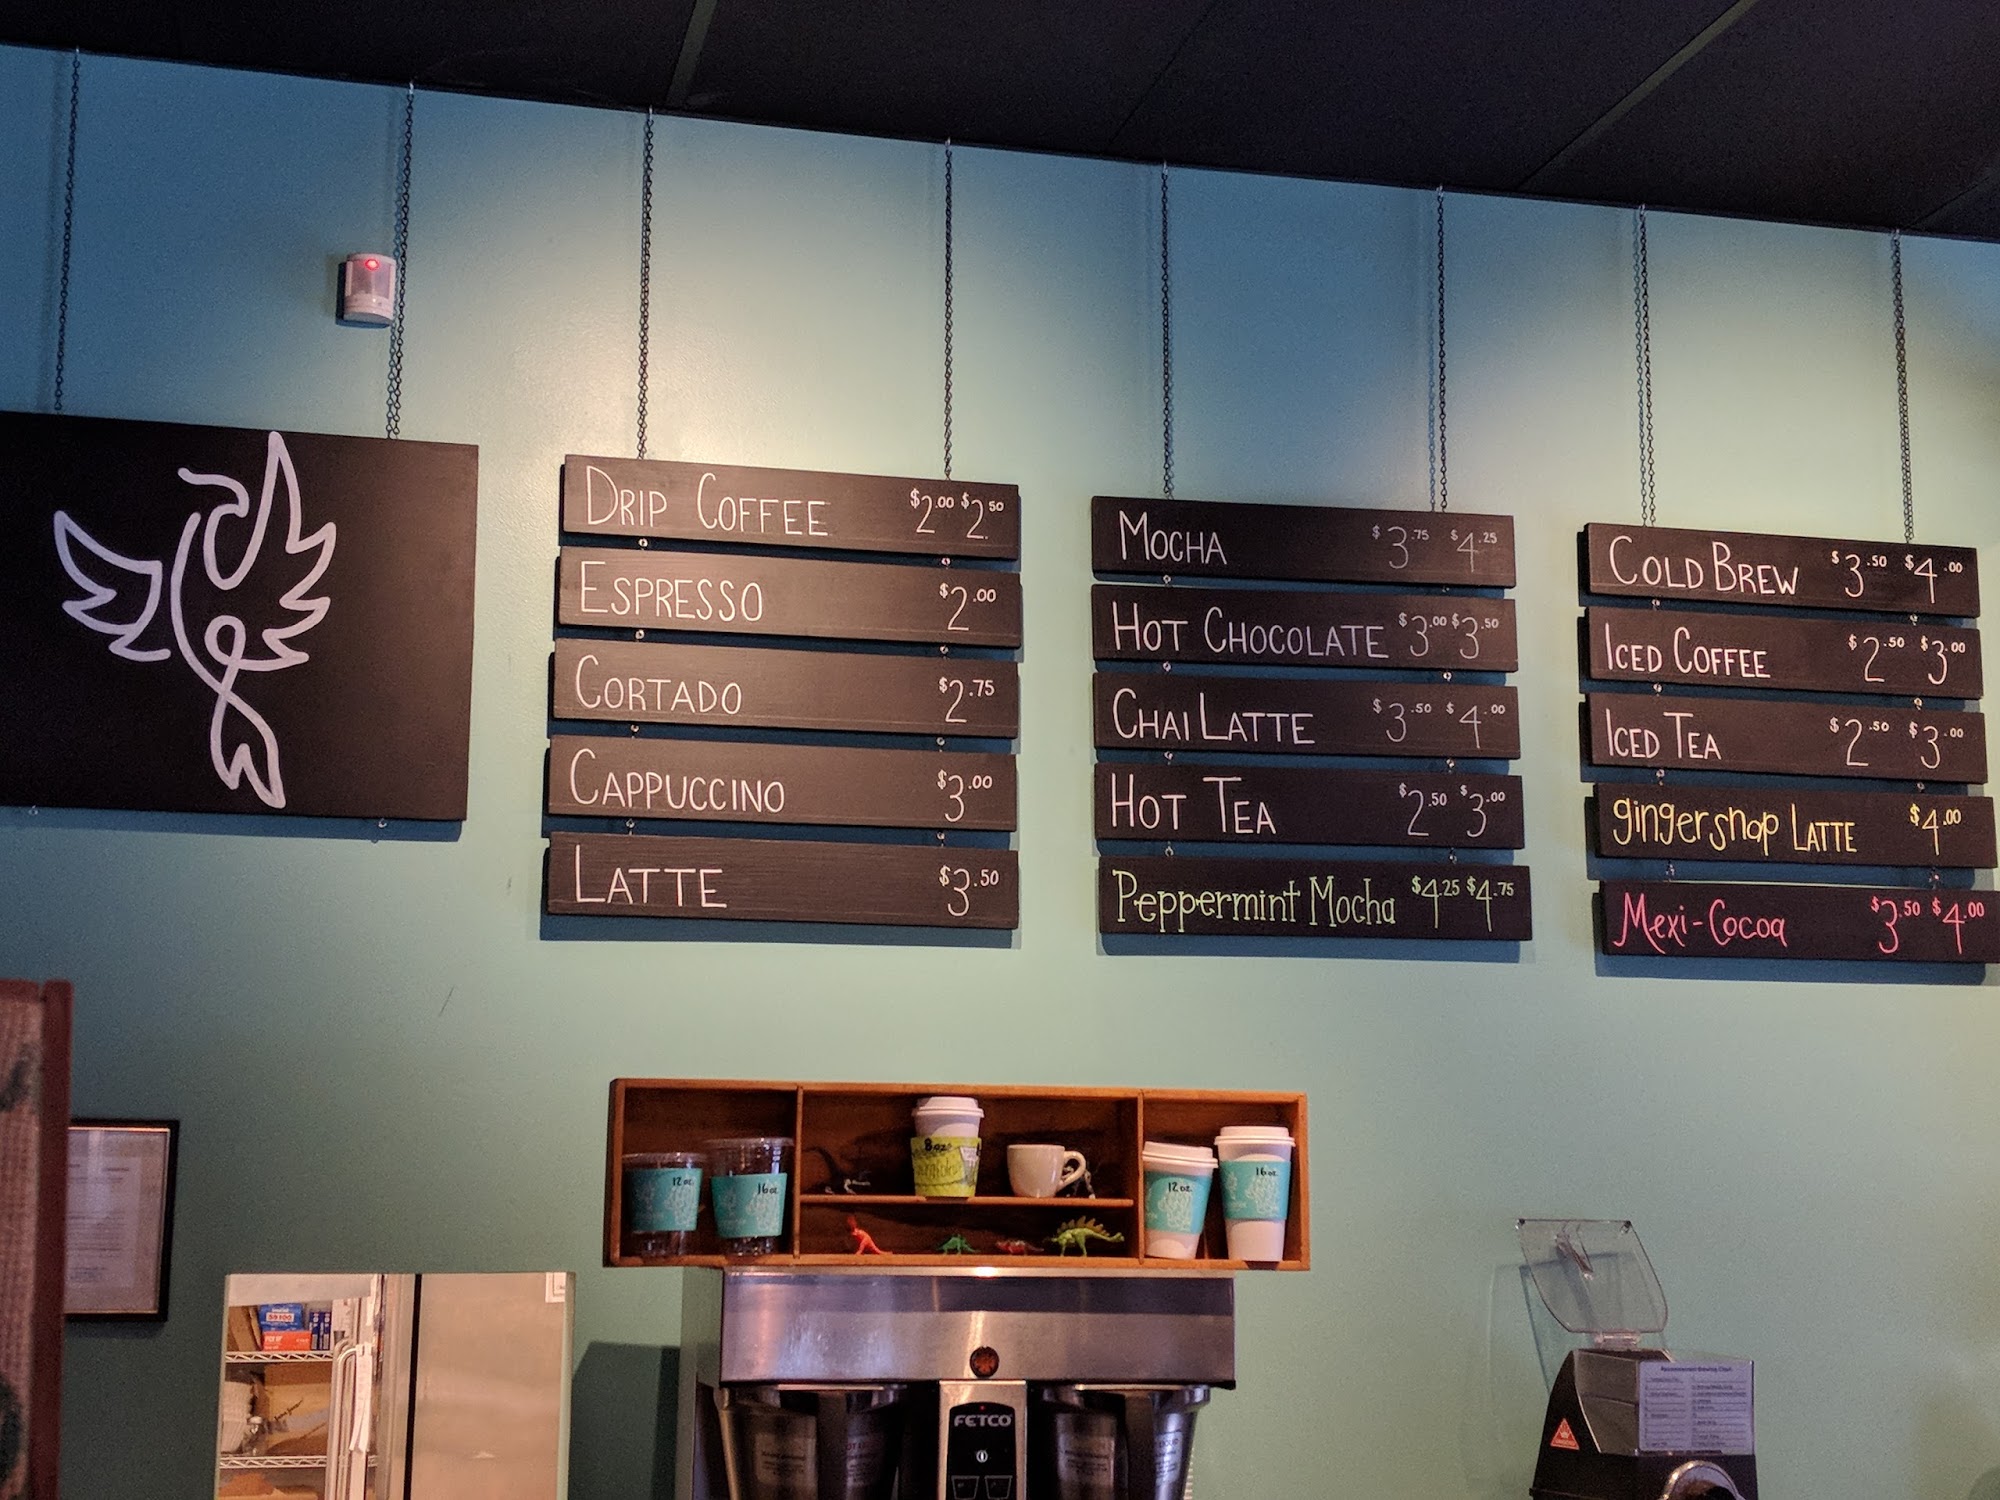 DRIP COFFEE $2.00 $2.50
ESPRESSO $2.00
CORTADO $2.75
CAPPUCCINO $3.00
LATTE $3.50
MOCHA $3.75 $4.25
HOT CHOCOLATE $3.00 $3.50
CHAI LATTE $3.50 $4.00
HOT TEA $2.50 $3.00
Peppermint Mocha $4.25 $4.75
COLD BREW $3.50 $4.00
ICED COFFEE $2.50 $3.00
ICED TEA $2.50 $3.00
gingersnap LATTE $4.00
Mexi-Cocoa $3.50 $4.00
12oz.
16oz.
8oz.
12oz.
16oz.
FETCO